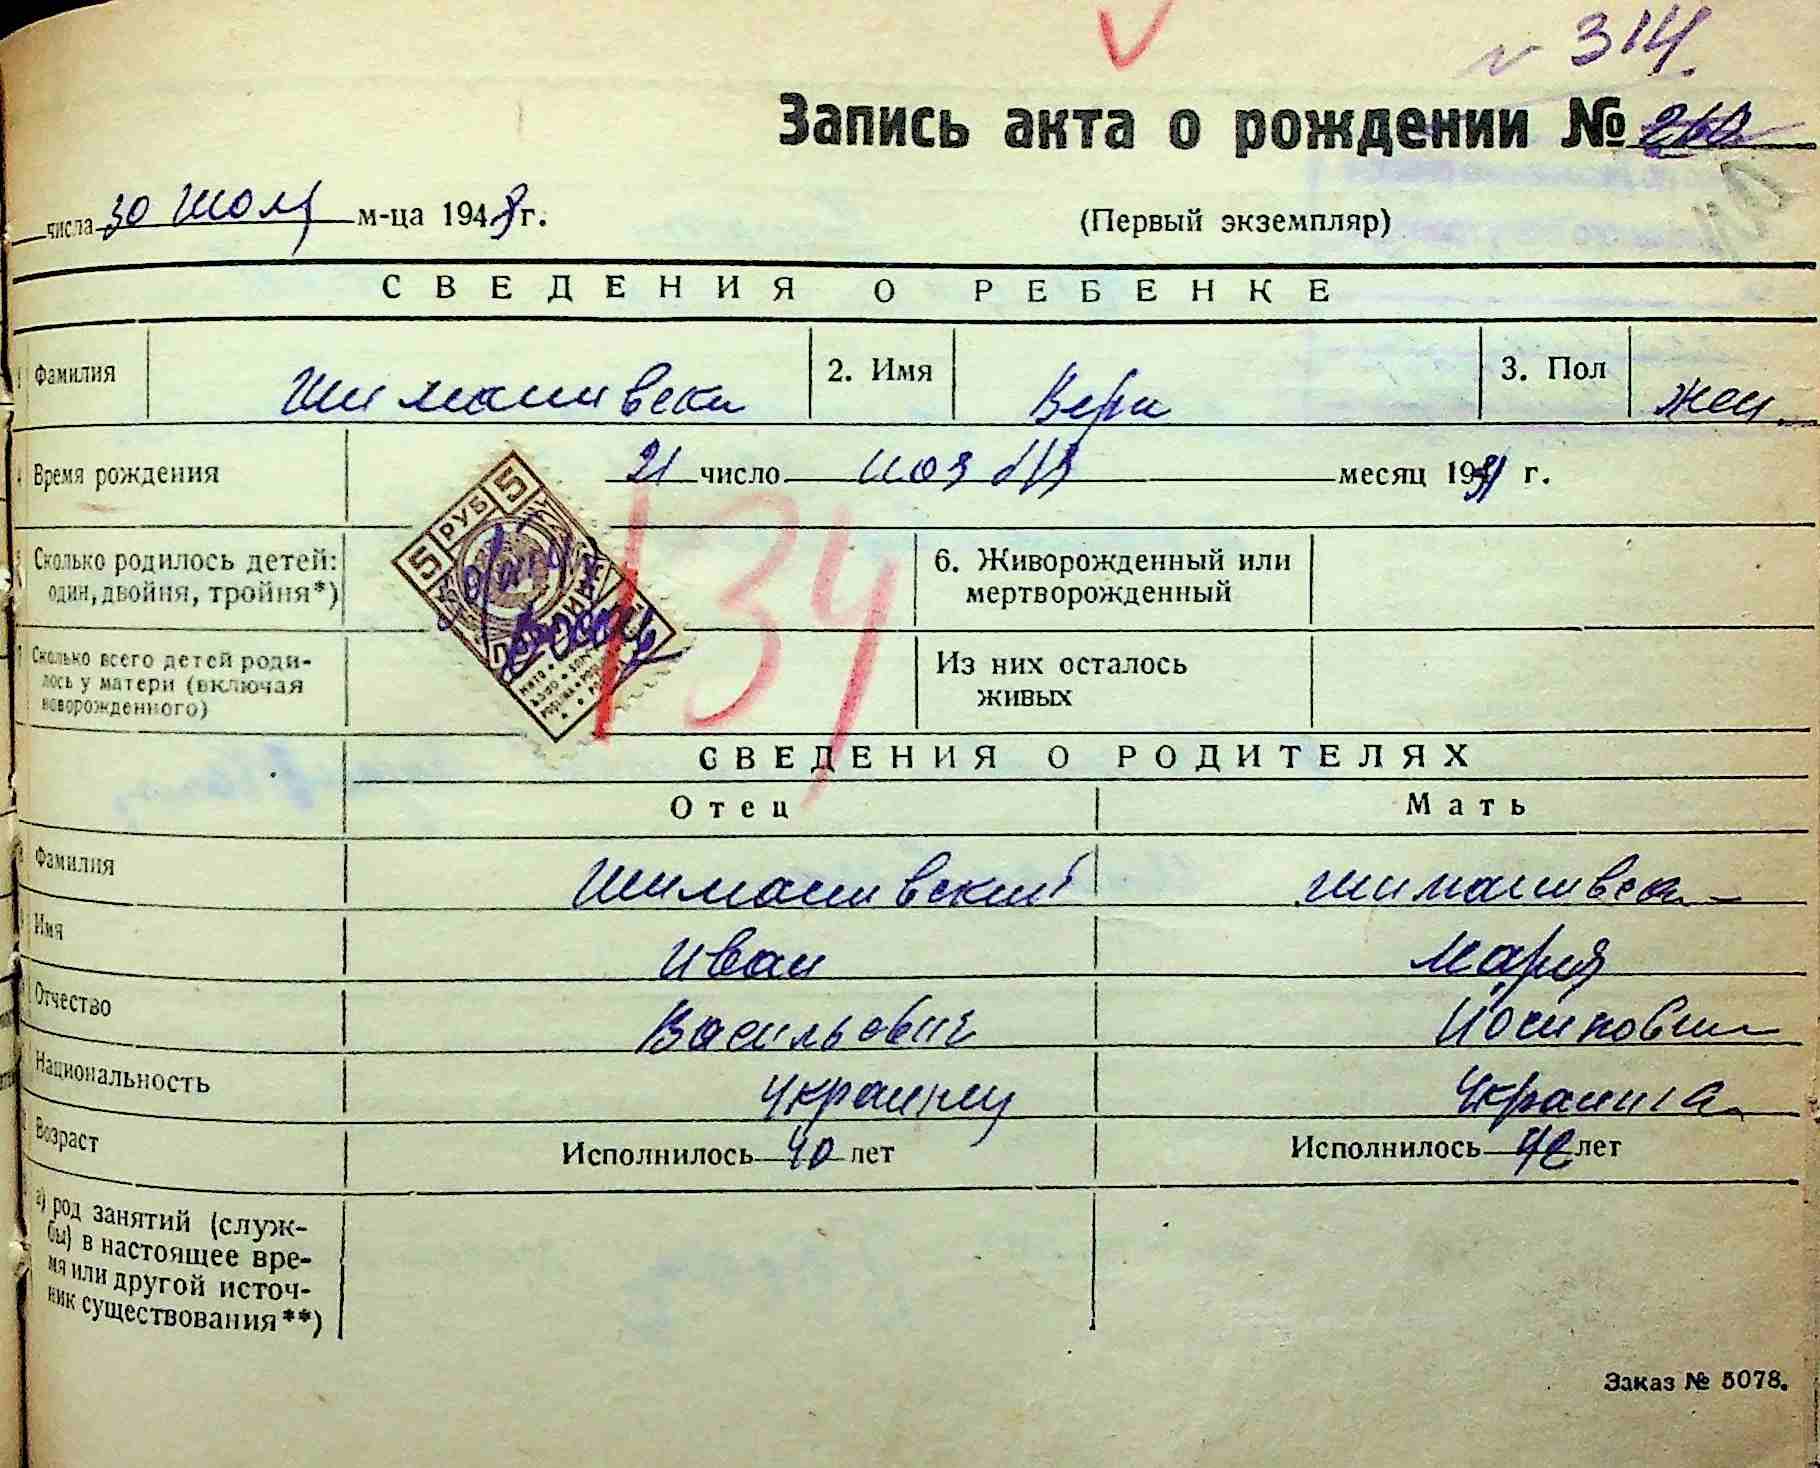 № 314.
Запись акта о рождении № 260
числа 30 июля м-ца 1948 г.
(Первый экземпляр)
СВЕДЕНИЯ О РЕБЕНКЕ
Фамилия Шимашивска 2. Имя Вера 3. Пол жен.
Время рождения 21 число ноября месяц 1931 г.
Сколько родилось детей:
один, двойня, тройня*)
6. Живорожденный или
мертворожденный
5 РУБ 5
134
Сколько всего детей роди-
лось у матери (включая
новорожденного)
Из них осталось
живых
СВЕДЕНИЯ О РОДИТЕЛЯХ
Отец Мать
Фамилия Шимашивский Шимашивска
Имя Иван Мария
Отчество Васильович Йосиповна
Национальность Украинец Украинка
Возраст Исполнилось 40 лет Исполнилось 42 лет
а) род занятий (служ-
бы) в настоящее вре-
мя или другой источ-
ник существования**)
Заказ № 5078.